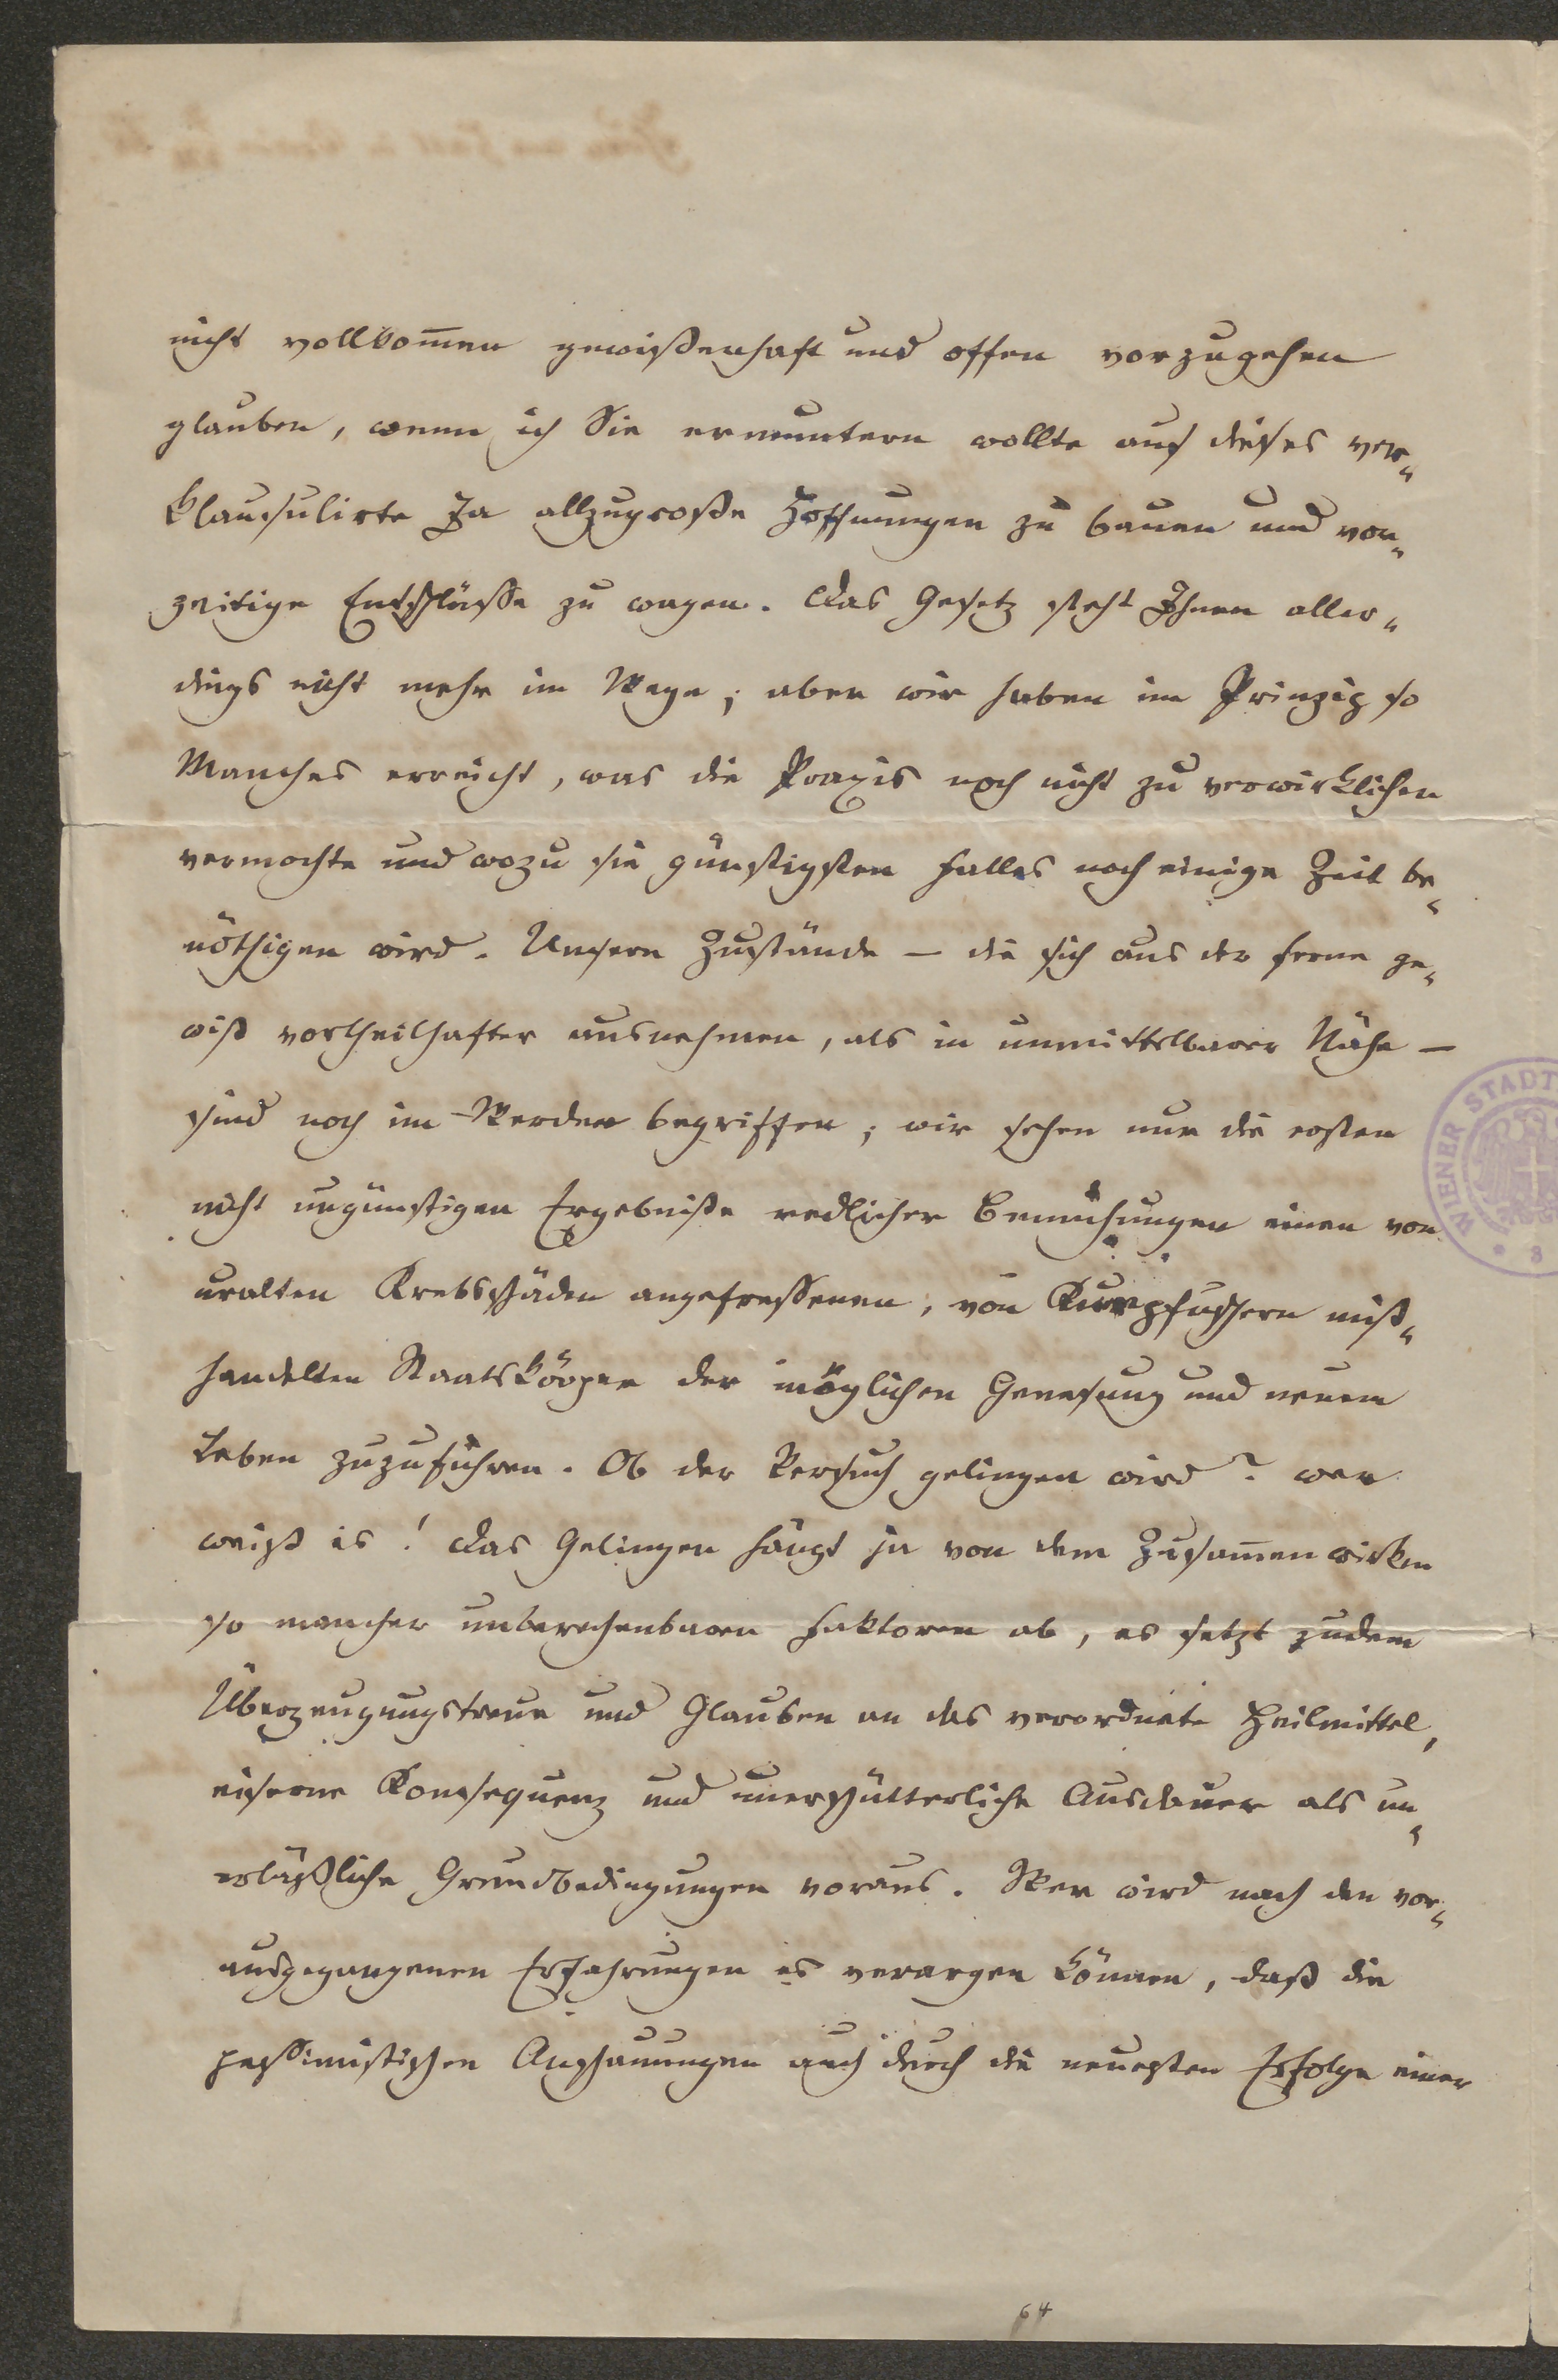 nicht vollkom̅en gewißenhaft und offen vorzugehen
glauben, wenn ich Sie ermuntern wollte auf dieses ver„
klausulirte Ja allzugroße Hoffnungen zu bauen und vor„
zeitige Entschlüsse zu wagen. Das Gesetz steht Ihnen aller„
dings nicht mehr im Wege; aber wir haben im Prinzip so
Manches erreicht, was die Praxis noch nicht zu verwirklichen
vermochte und wozu sie günstigsten Falles noch einige Zeit be„
nöthigen wird. Unsere Zustände – die sich aus der Ferne ge„
wiß vortheilhafter ausnehmen, als in unmittelbarer Nähe –
sind noch im Werden begriffen; wir sehen nur die ersten
nicht ungünstigen Ergebniße redlicher Bemühungen einen von
uralten Krebsschäden angefressenen, von Kurpfuschern miß„
handelten Staatskörper der möglichen Genesung und neuem
Leben zuzuführen. Ob der Versuch gelingen wird? wer
weiß es! Das Gelingen hängt ja von dem Zusam̅enwirken
so mancher unberechenbaren Faktoren ab, es setzt zudem
Überzeugungstreue und Glauben an das verordnete Heilmittel,
eiserne Konsequenz und unerschütterliche Ausdauer als un„
erläßliche Grundbedingungen voraus. Wer wird nach den vor„
ausgegangenen Erfahrungen es verargen können, daß die
pessimistischen Anschauungen auch durch die neuesten Erfolge einer
64
WIENER STADT